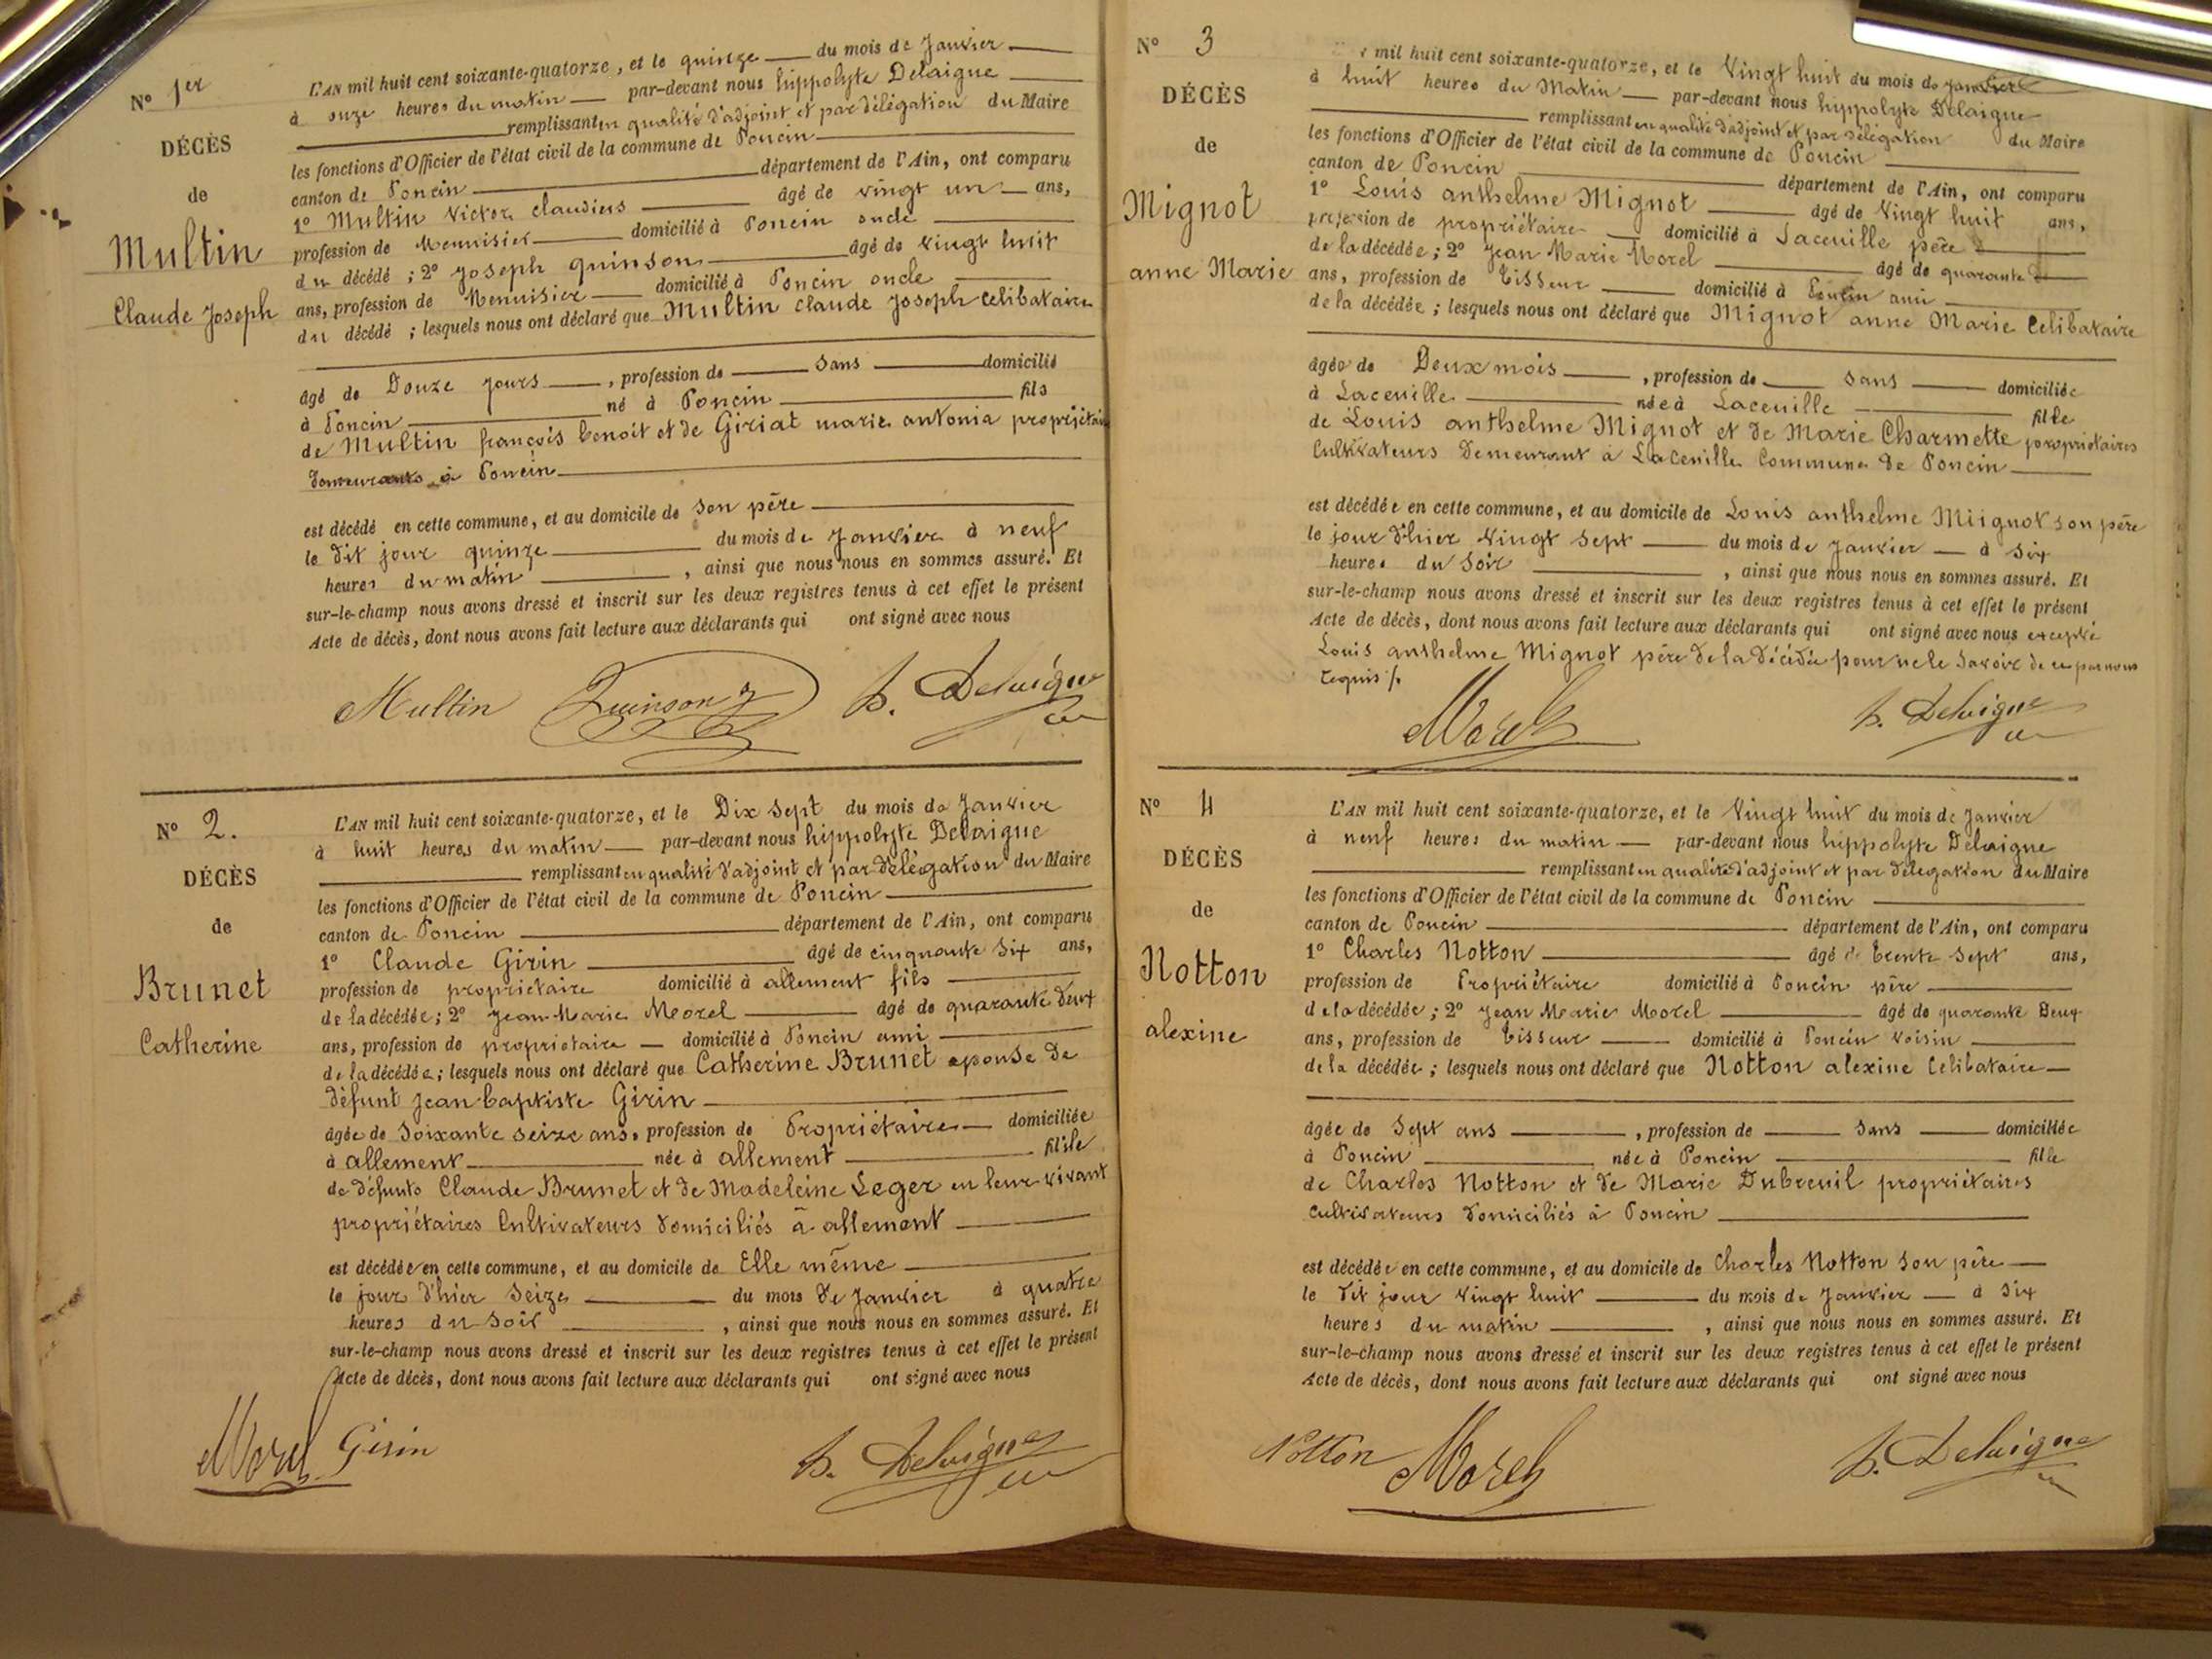 N° 1er
DÉCÈS
de
Multin
Claude Joseph
L'AN mil huit cent soixante-quatorze, et le quinze du mois de Janvier
à onze heures du matin par-devant nous hippolyte Delaigue
remplissant en qualité d'adjoint et par délégation du Maire
les fonctions d'Officier de l'état civil de la commune de Poncin
canton de Poncin département de l'Ain, ont comparu
1° Multin Victor Claudius âgé de vingt un ans,
profession de Menuisier domicilié à Poncin oncle
du décédé ; 2° Joseph quinson âgé de vingt huit
ans, profession de Menuisier domicilié à Poncin oncle
du décédé ; lesquels nous ont déclaré que Multin Claude Joseph Celibataire
âgé de Douze jours, profession de sans domicilié
à Poncin né à Poncin fils
de Multin françois benoit et de Giriat marie antonia propriétaires
demeurants à Poncin
est décédé en cette commune, et au domicile de son père
le dit jour quinze du mois de Janvier à neuf
heures du matin, ainsi que nous nous en sommes assuré. Et
sur-le-champ nous avons dressé et inscrit sur les deux registres tenus à cet effet le présent
Acte de décès, dont nous avons fait lecture aux déclarants qui ont signé avec nous
Multin Quinson h. Delaigue
N° 2.
DÉCÈS
de
Brunet
Catherine
L'AN mil huit cent soixante-quatorze, et le Dix sept du mois de Janvier
à huit heures du matin par-devant nous hippolyte Delaigue
remplissant en qualité d'adjoint et par délégation du Maire
les fonctions d'Officier de l'état civil de la commune de Poncin
canton de Poncin département de l'Ain, ont comparu
1° Claude Girin âgé de cinquante six ans,
profession de propriétaire domicilié à allement fils
de la décédée ; 2° Jean Marie Morel âgé de quarante deux
ans, profession de propriétaire domicilié à Poncin ami
de la décédée ; lesquels nous ont déclaré que Catherine Brunet epouse de
défunt Jean baptiste Girin
âgée de soixante seize ans, profession de Propriétaire domiciliée
à allement née à allement fille
de défunts Claude Brunet et de Madeleine Leger en leur vivant
propriétaires Cultivateurs domiciliés à allement
est décédée en cette commune, et au domicile de Elle même
le jour d'hier seize du mois de Janvier à quatre
heures du soir, ainsi que nous nous en sommes assuré. Et
sur-le-champ nous avons dressé et inscrit sur les deux registres tenus à cet effet le présent
Acte de décès, dont nous avons fait lecture aux déclarants qui ont signé avec nous
Morel Girin h. Delaigue
N° 3
DÉCÈS
de
Mignot
anne Marie
mil huit cent soixante-quatorze, et le Vingt huit du mois de Janvier
à huit heures du Matin par-devant nous hippolyte Delaigue
remplissant en qualité d'adjoint et par délégation du Maire
les fonctions d'Officier de l'état civil de la commune de Poncin
canton de Poncin département de l'Ain, ont comparu
1° Louis anthelme Mignot âgé de Vingt huit ans,
profession de propriétaire domicilié à Laceuille père
de la décédée ; 2° Jean Marie Morel âgé de quarante
ans, profession de Tisseur domicilié à Poncin ami
de la décédée ; lesquels nous ont déclaré que Mignot anne Marie Celibataire
âgée de Deux mois, profession de sans domiciliée
à Laceuille née à Laceuille fille
de Louis anthelme Mignot et de Marie Charmette propriétaires
Cultivateurs demeurant à Laceuille Commune de Poncin
est décédée en cette commune, et au domicile de Louis anthelme Miignot son père
le jour d'hier Vingt sept du mois de Janvier à six
heures du soir, ainsi que nous nous en sommes assuré. Et
sur-le-champ nous avons dressé et inscrit sur les deux registres tenus à cet effet le présent
Acte de décès, dont nous avons fait lecture aux déclarants qui ont signé avec nous excepté
Louis anthelme Mignot père de la décédée pour ne le savoir de ce par nous
requis /.
Morel h. Delaigue
N° 4
DÉCÈS
de
Notton
alexine
L'AN mil huit cent soixante-quatorze, et le Vingt huit du mois de Janvier
à neuf heures du matin par-devant nous hippolyte Delaigue
remplissant en qualité d'adjoint et par délégation du Maire
les fonctions d'Officier de l'état civil de la commune de Poncin
canton de Poncin département de l'Ain, ont comparu
1° Charles Notton âgé de trente sept ans,
profession de Propriétaire domicilié à Poncin père
de la décédée ; 2° Jean Marie Morel âgé de quarante Deux
ans, profession de Tisseur domicilié à Poncin voisin
de la décédée ; lesquels nous ont déclaré que Notton alexine Celibataire
âgée de Sept ans, profession de sans domiciliée
à Poncin née à Poncin fille
de Charles Notton et de Marie Dubreuil propriétaires
Cultivateurs domiciliés à Poncin
est décédée en cette commune, et au domicile de Charles Notton son père
le dit jour vingt huit du mois de Janvier à six
heures du matin, ainsi que nous nous en sommes assuré. Et
sur-le-champ nous avons dressé et inscrit sur les deux registres tenus à cet effet le présent
Acte de décès, dont nous avons fait lecture aux déclarants qui ont signé avec nous
Notton Morel h. Delaigue